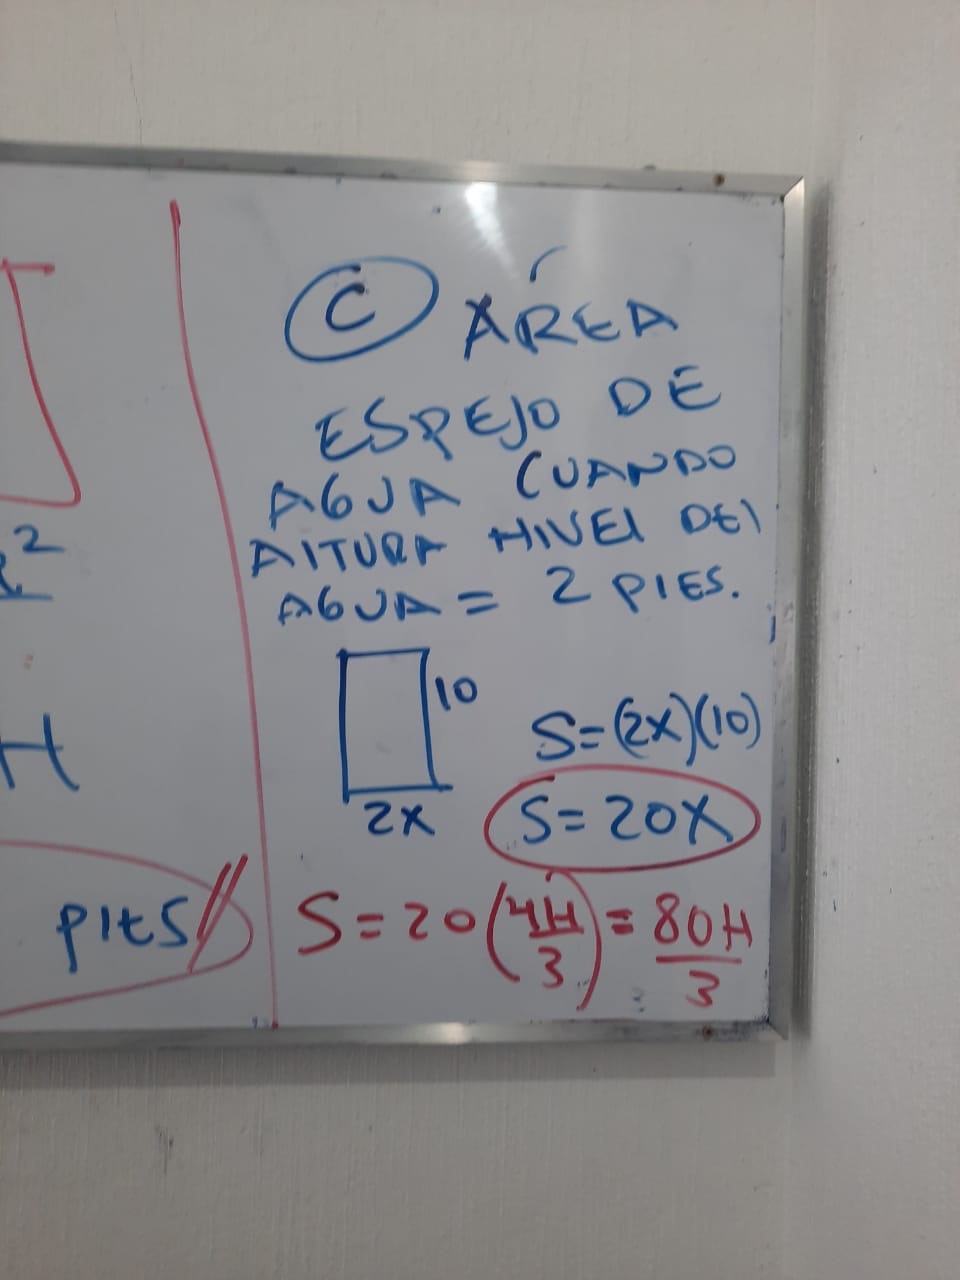 C ÁREA
ESPEJO DE
AGUA CUANDO
AlTURA NIVEl DEl
AGUA = 2 PIES.
10
2X
S=(2X)(10)
S=20X
S=20(4H/3)=80H/3
2
H
PIES//